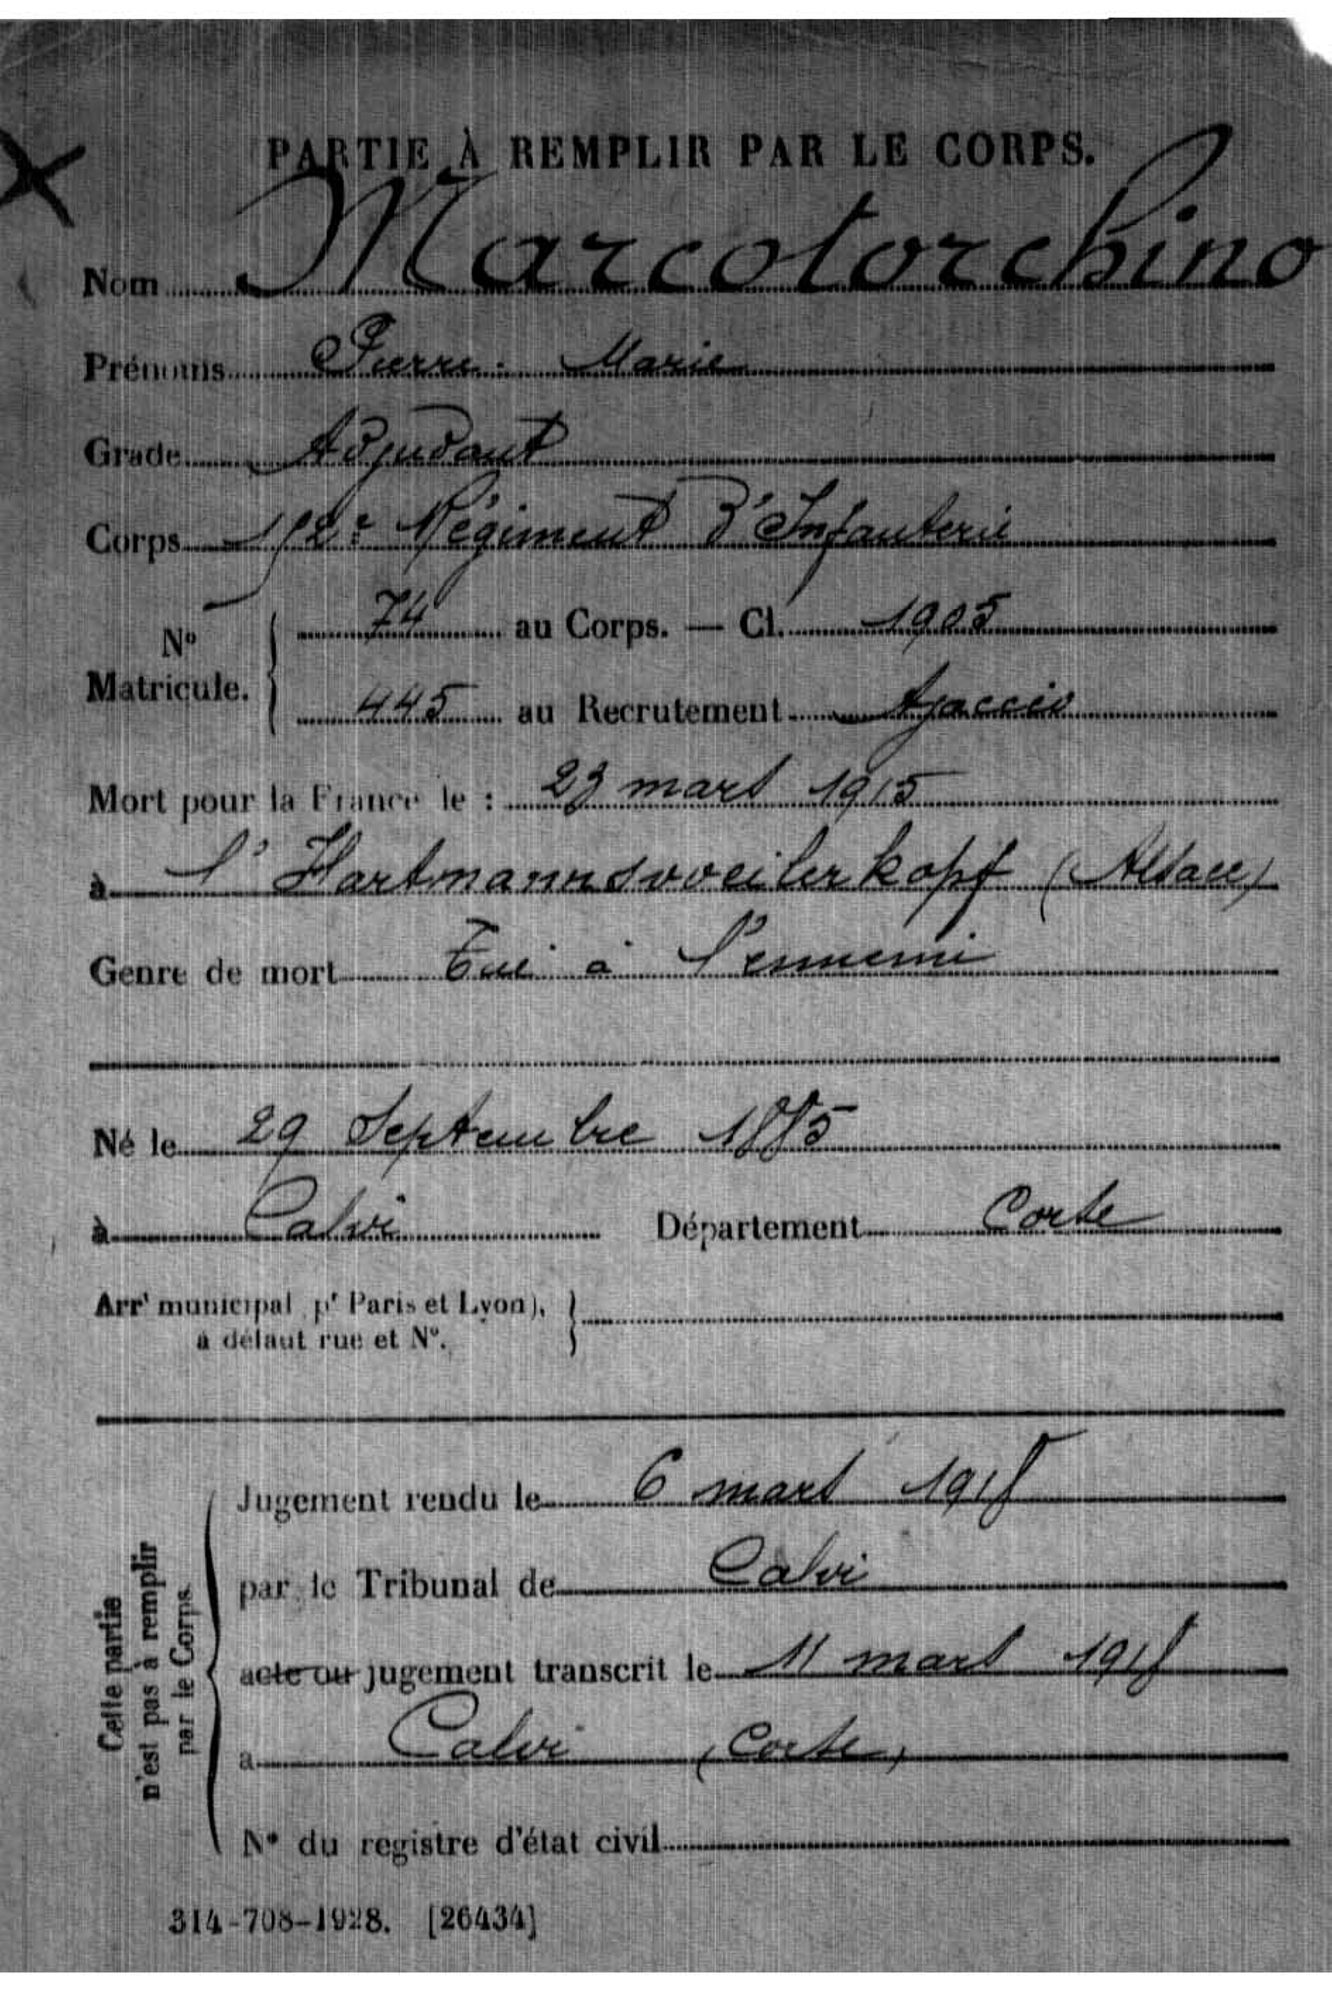 PARTIE À REMPLIR PAR LE CORPS.
Nom Marcotorchino
Prénoms Pierre. Marie
Grade Adjudant
Corps 152e Régiment d'Infanterie
N° Matricule. 74 au Corps. — Cl. 1905
445 au Recrutement Ajaccio
Mort pour la France le : 23 mars 1915
à l'Hartmannsweilerkopf (Alsace)
Genre de mort Tué à l'ennemi
Né le 29 Septembre 1885
à Calvi Département Corse
Arrt municipal pr Paris et Lyon),
à défaut rue et N°.
Cette partie
n'est pas à remplir
par le Corps.
Jugement rendu le 6 mars 1918
par le Tribunal de Calvi
acte ou jugement transcrit le 11 mars 1918
à Calvi (Corse)
N° du registre d'état civil
314-708-1928. [26434]